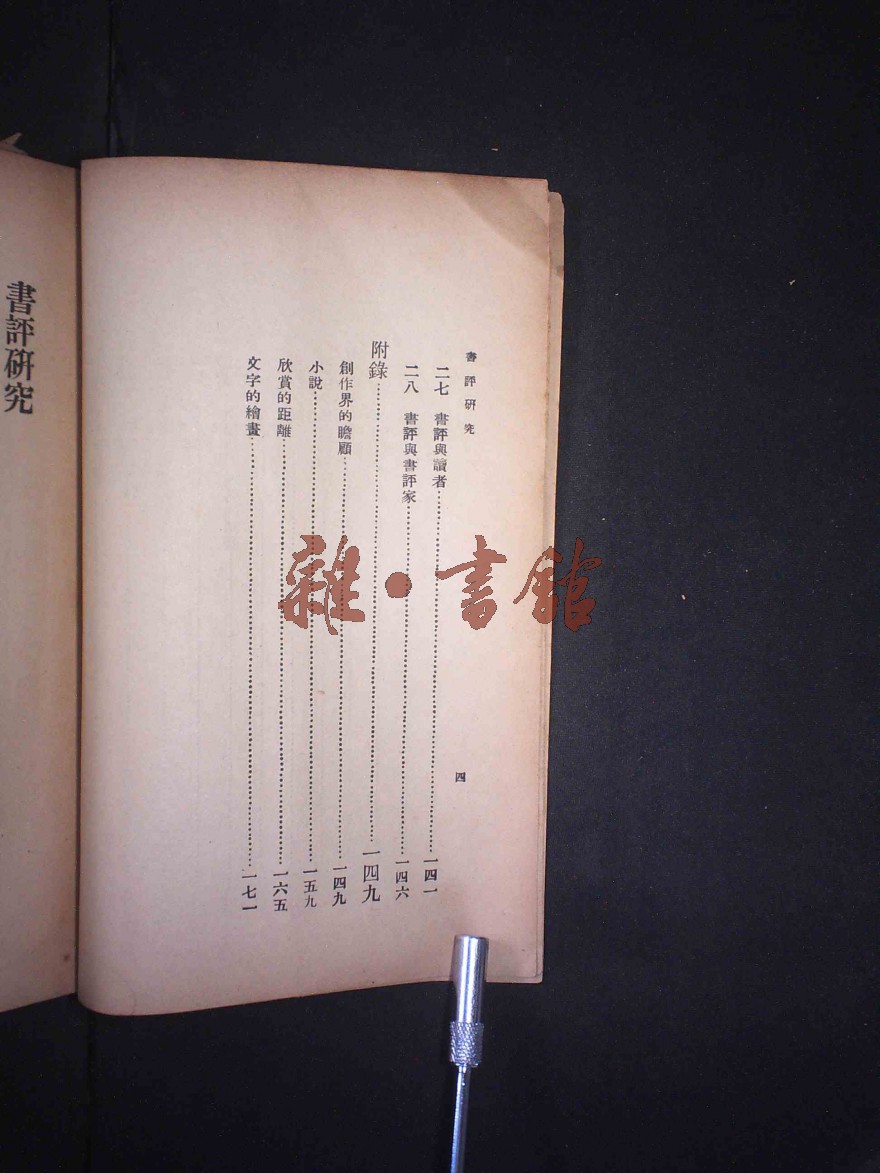 書評研究
四
二七 書評與讀者……一四一
二八 書評與書評家……一四六
附錄……一四九
創作界的瞻顧……一四九
小說……一五九
欣賞的距離……一六五
文字的繪畫……一七一
書評研究
雜·書館